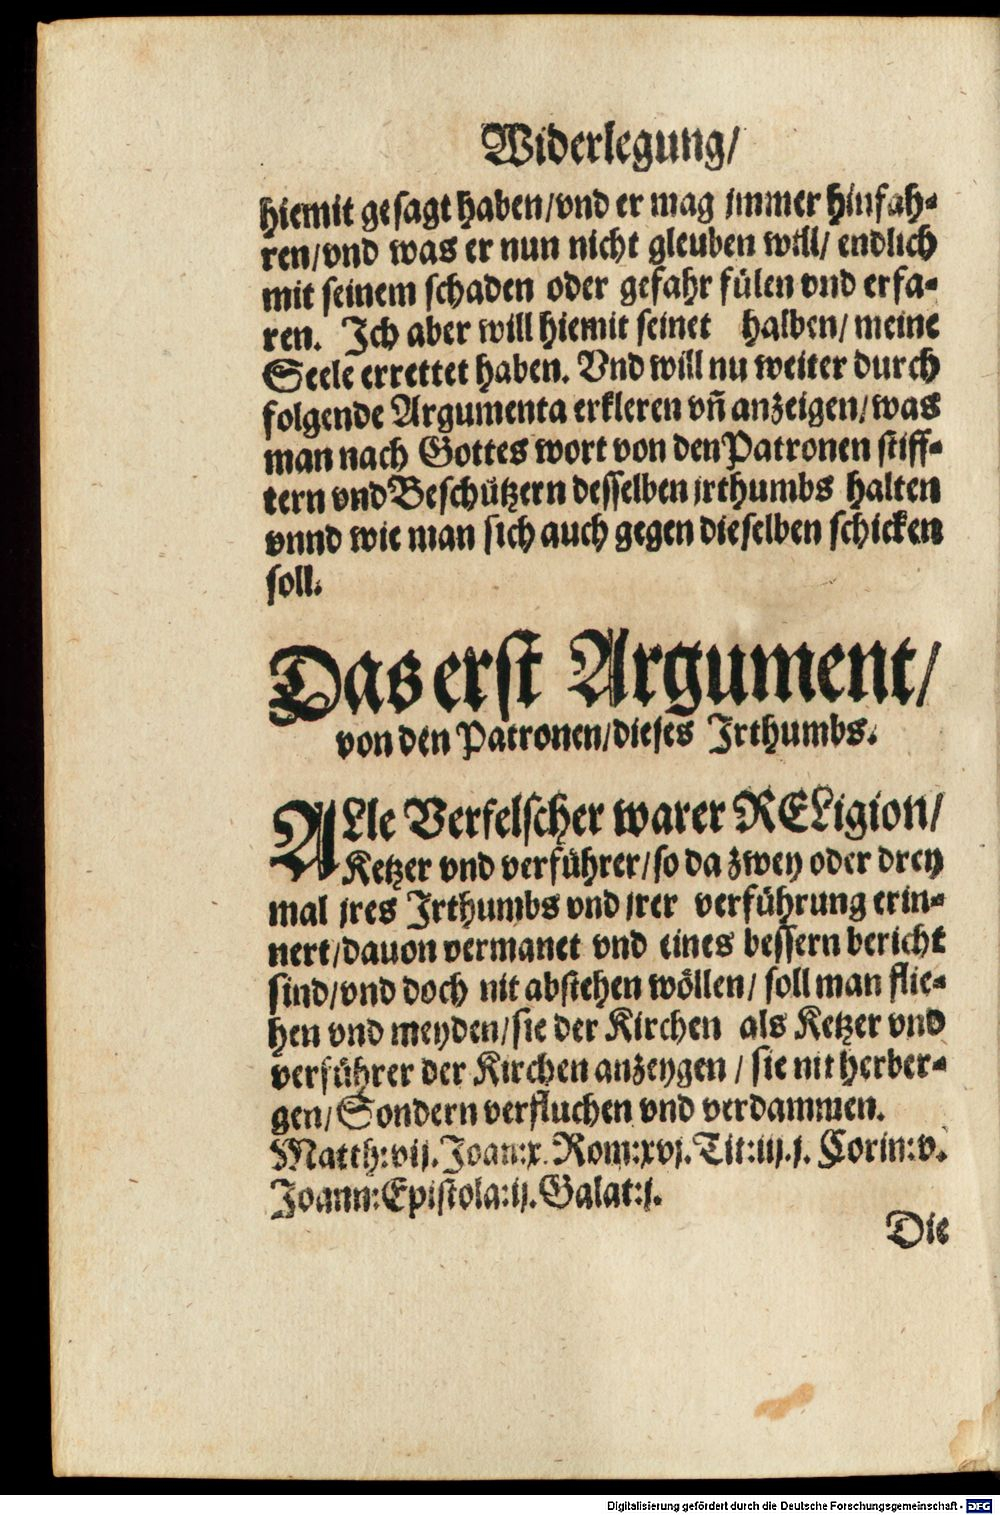 Widerlegung/
hiemit gesagt haben/vnd er mag jmmer hinfah-
ren/vnd was er nun nicht gleuben will/ endlich
mit seinem schaden oder gefahr fülen vnd erfa-
ren. Ich aber will hiemit seinet halben/ meine
Seele errettet haben. Vnd will nu weiter durch
folgende Argumenta erkleren vñ anzeigen/was
man nach Gottes wort von den Patronen stiff-
tern vnd Beschützern desselben jrthumbs halten
vnnd wie man sich auch gegen dieselben schicken
soll.
Das erst Argument/
von den Patronen/dieses Irthumbs.
ALle Verfelscher warer RELigion/
Ketzer vnd verführer/so da zwey oder drey
mal jres Irthumbs vnd jrer verführung erin-
nert/dauon vermanet vnd eines bessern bericht
sind/vnd doch nit abstehen wöllen/ soll man flie-
hen vnd meyden/sie der Kirchen als Ketzer vnd
verführer der Kirchen anzeygen / sie nit herber-
gen/Sondern verfluchen vnd verdammen.
Matth:vij. Joan:x. Rom:xvj. Tit:iij.j. Corin:v.
Joann:Epistola:ij. Galat:j.
Die
Digitalisierung gefördert durch die Deutsche Forschungsgemeinschaft - DFG